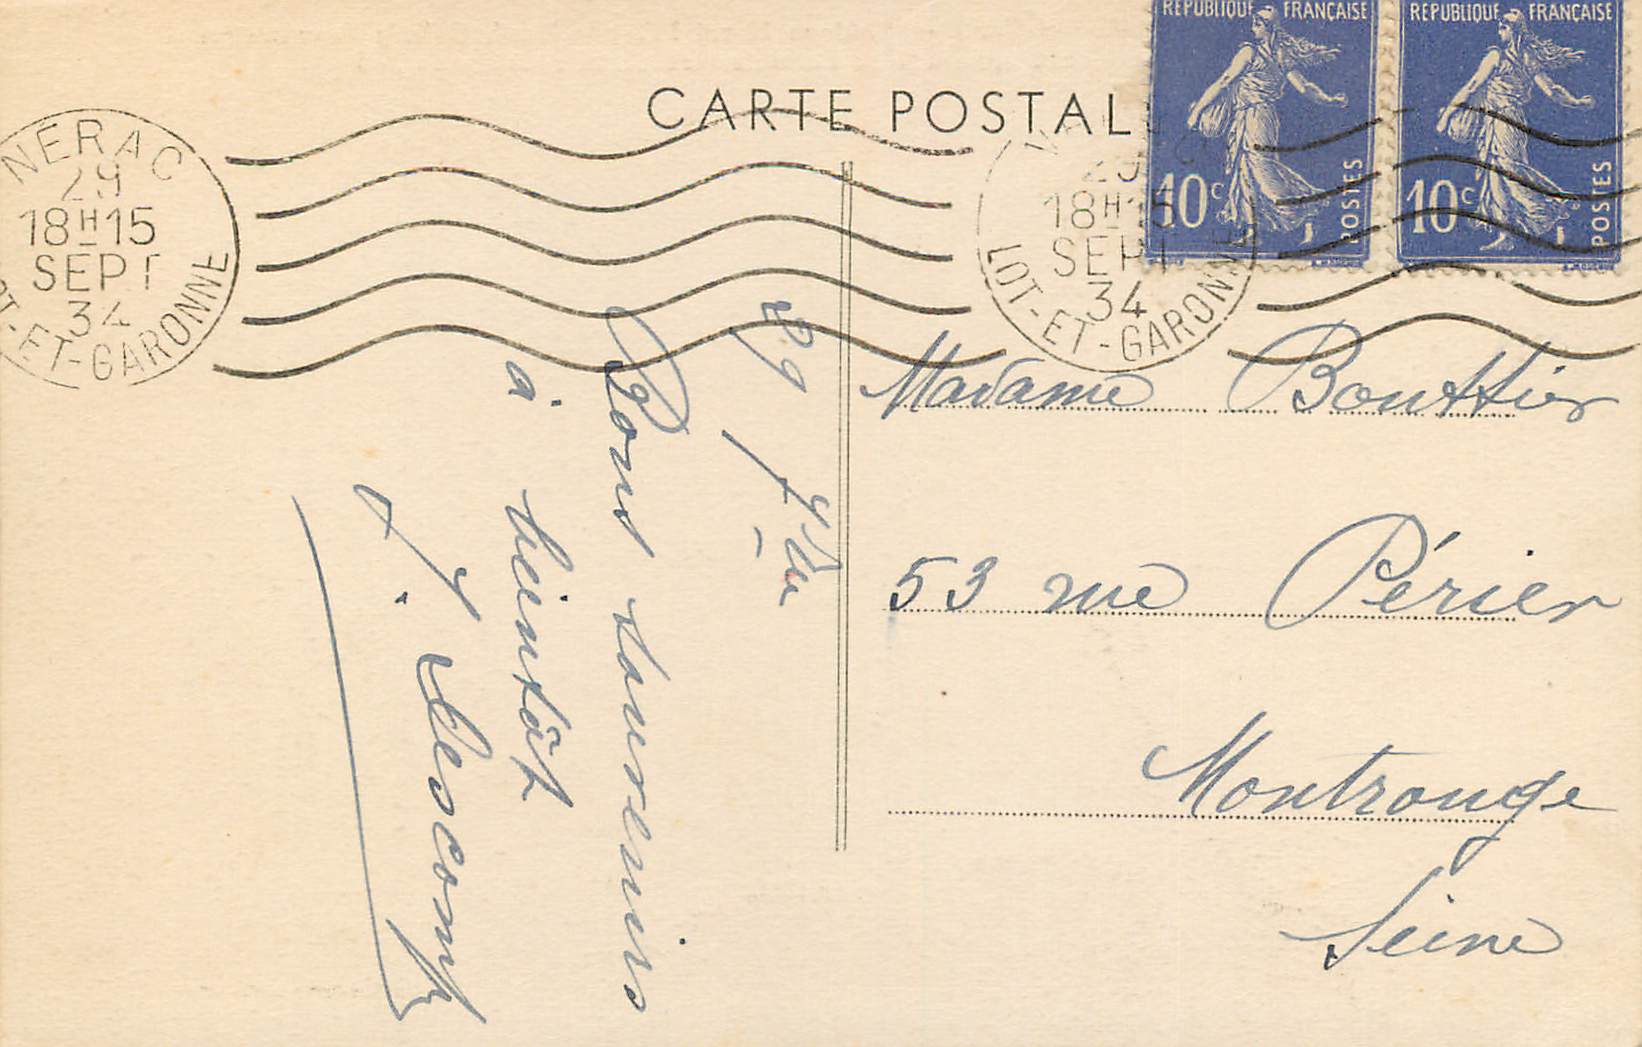 CARTE POSTAL
REPUBLIQUE FRANÇAISE
10c
POSTES
REPUBLIQUE FRANÇAISE
10c
POSTES
NERAC
29
18H15
SEPT
34
LOT-ET-GARONNE
18H15
SEPT
34
LOT-ET-GARONNE
29
Bons souvenirs
à bientôt
J. Lescomp
Madame Bouttier
53 rue Périer
Montrouge
Seine